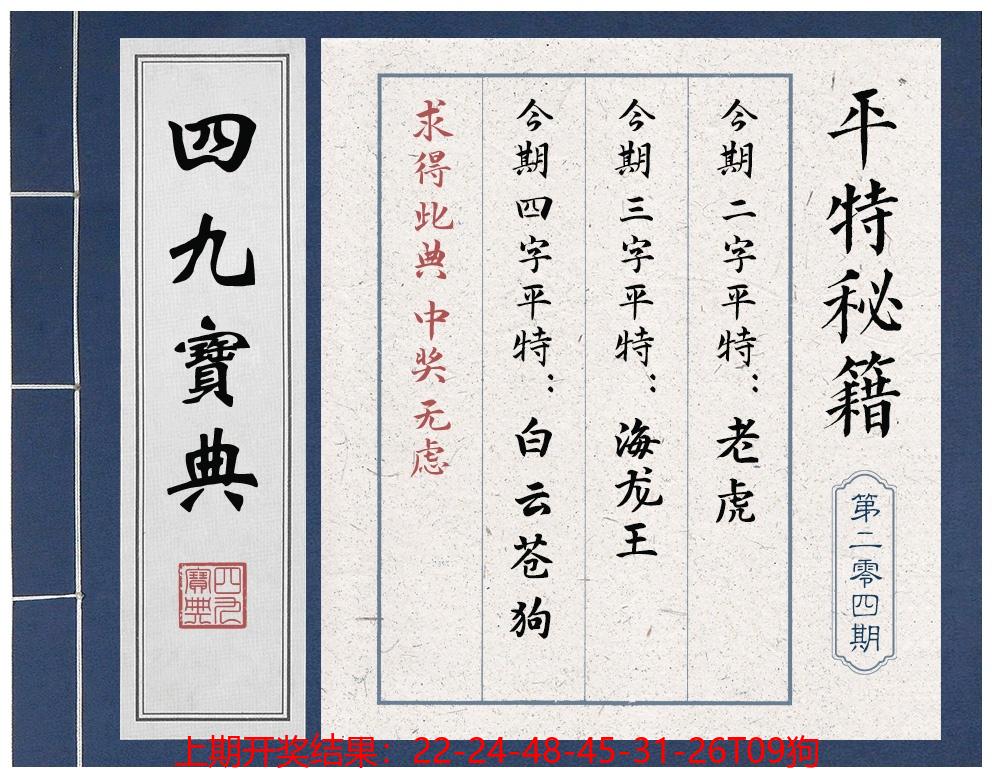 平特秘籍
第二零四期
今期二字平特：老虎
今期三字平特：海龙王
今期四字平特：白云苍狗
求得此典 中奖无虑
四九寶典
四九寶典
上期开奖结果：22-24-48-45-31-26T09狗